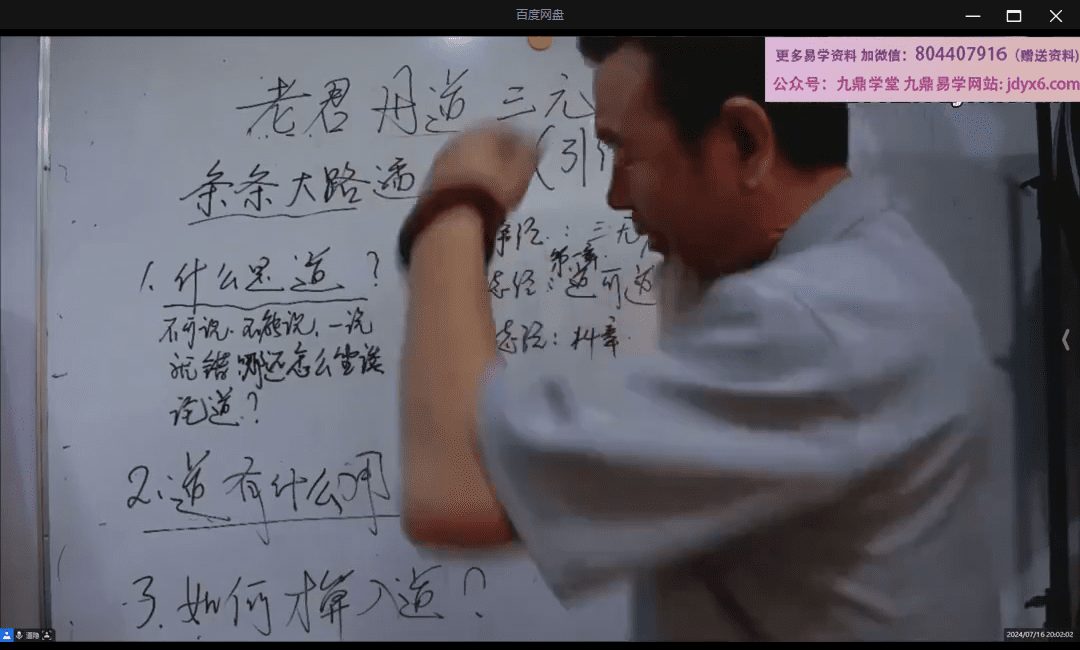 百度网盘
更多易学资料 加微信: 804407916 (赠送资料)
公众号: 九鼎学堂 九鼎易学网站: jdyx6.com
老君 用道 三元
(引
条条大路通
经: 三元
第一章
经: 道可道
1. 什么是道?
不可说、不能说, 一说
就错, 哪还怎么坐谈
论道?
2. 道有什么用
3. 如何才算入道?
2024/07/16 20:02:02